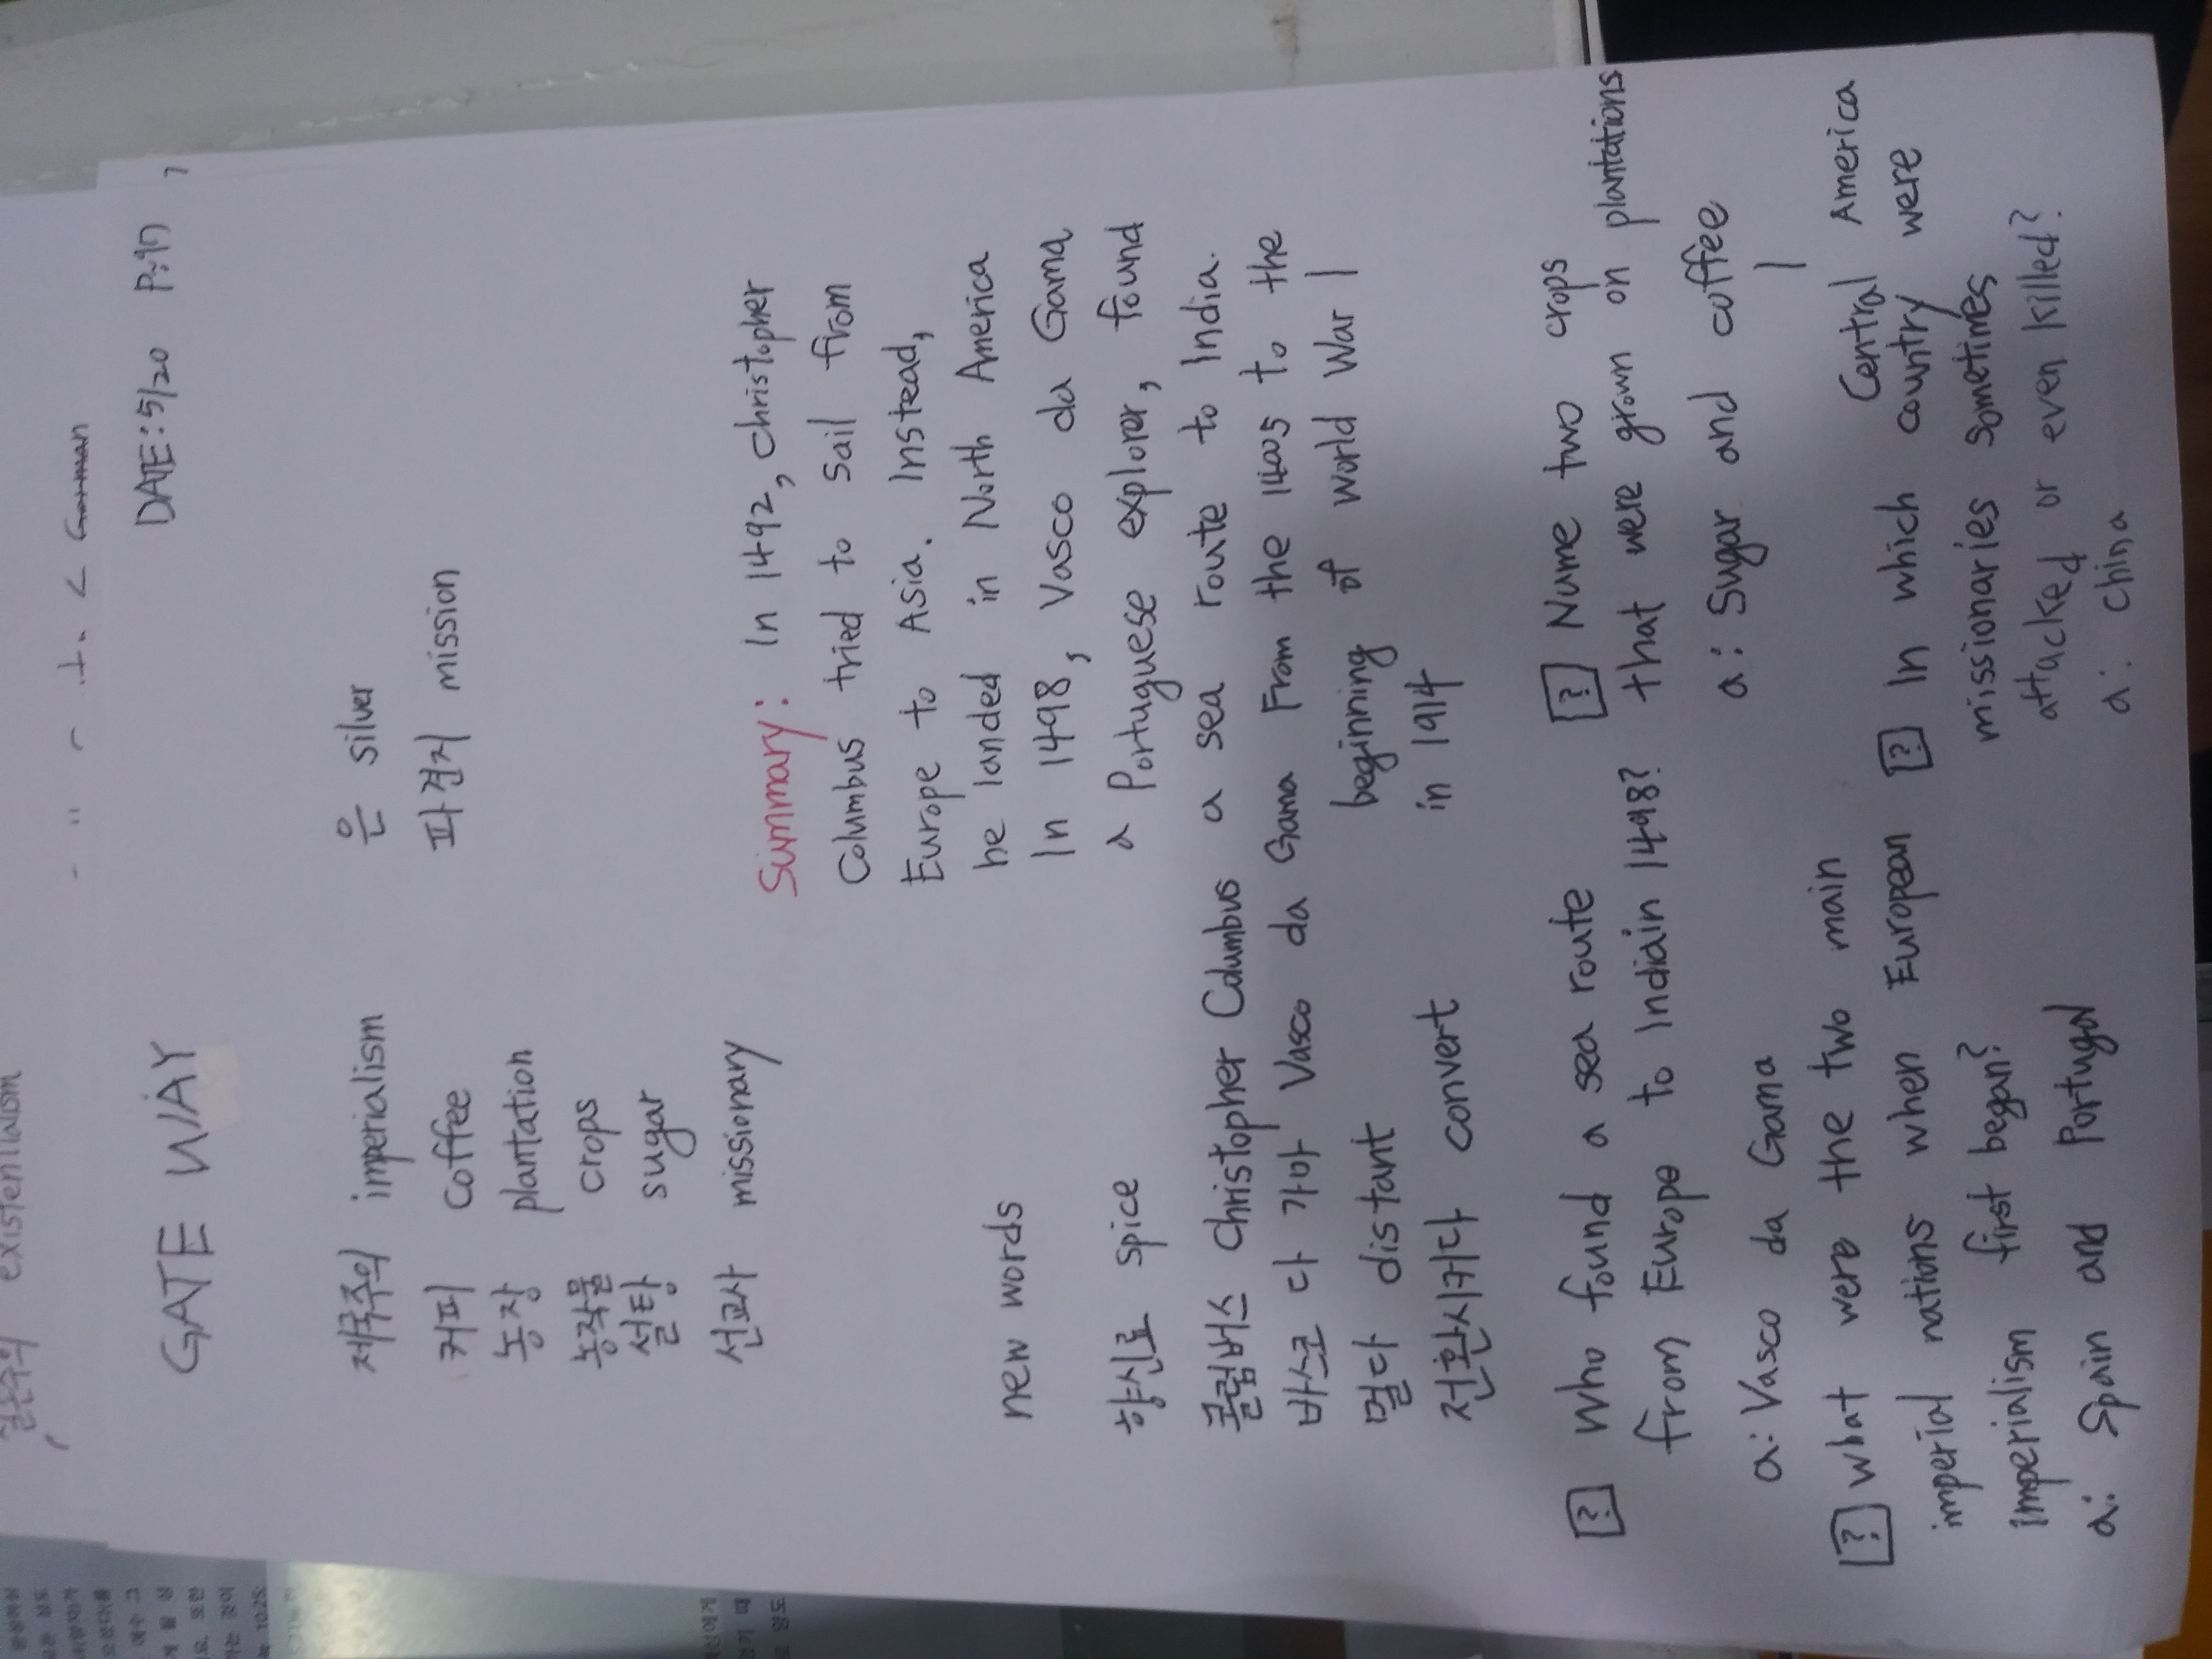 실존주의 existentialism
German
GATE WAY DATE:5/20 P:97
제국주의 imperialism 은 silver
커피 coffee 파견지 mission
농장 plantation
농작물 crops
설탕 sugar
선교사 missionary
Summary: In 1492, christopher
Columbus tried to sail from
Europe to Asia. Instead,
he landed in North America
In 1498, Vasco da Gama
a Portuguese explorer, found
a sea route to India.
From the 1400s to the
beginning of world War 1
in 1914
new words
향신료 spice
콜럼버스 christopher Columbus
바스코 다 가마 Vasco da Gama
멀다 distant
전환시키다 convert
[?] Who found a sea route
from Europe to Indiain 1498?
a: Vasco da Gama
[?] what were the two main
imperial nations when European
imperialism first began?
a: Spain and Portugal
[?] Nume two crops
that were grown on plantations
a: Sugar and coffee
Central America
[?] In which country were
missionaries sometimes
attacked or even killed?
a: china